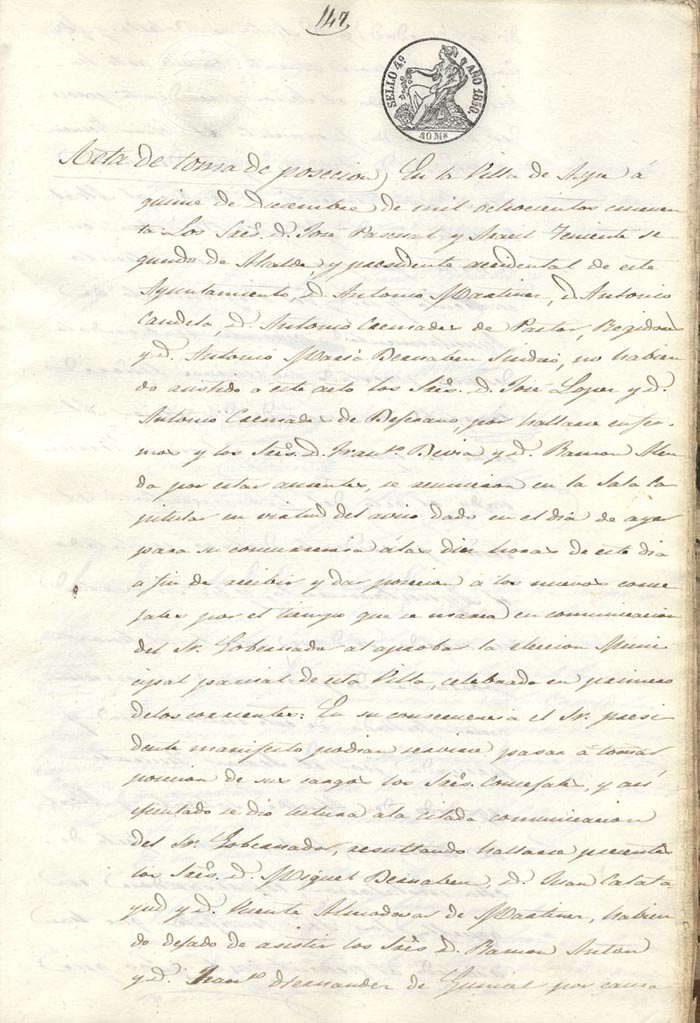 147.
SELLO 4º AÑO 1850.
40 Ms
Acta de toma de posecion) En la Villa de Aspe á
quince de Diciembre de mil ochocientos cincuen
ta Los Sres. D. José Pascual y Teniente se
gundo de Alcalde, y presidente accidental de este
Ayuntamiento, D. Antonio Martinez, D. Antonio
Candela, D. Antonio Cremades de Pastor, Regidores
y D. Antonio Maria Bernabeu Sindico, no habien
do asistido a este acto los Sres. D. José Lopez y D.
Antonio Cremades de por hallarse enfer
mos y los Sres. D. Franco. y D. Ramon
por estar ausentes, se reunieron en la Sala Ca
pitular en virtud del aviso dado en el dia de ayer
para su concurrencia á las diez horas de este dia
a fin de recibir y dar posecion a los nuevos conce
jales por el tiempo que se marca en comunicacion
del Sr. Gobernador al aprobar la eleccion Muni
cipal parcial de esta Villa, celebrada en primero
delos corrientes: En su consecuencia el Sr. presi
dente manifesto podian servirse pasar á tomar
posecion de sus cargos los Sres. Concejales, y asi
ejecutado se dio lectura ala citada comunicacion
del Sr. Gobernador, resultando hallarse presente
los Sres. D. Miguel Bernabeu, D. Juan Calata
yud y D. Vicente Almodovar de Martinez, habien
do dejado de asistir los Sres D. Ramon Anton
y D. Franco. Hernandez de por causa